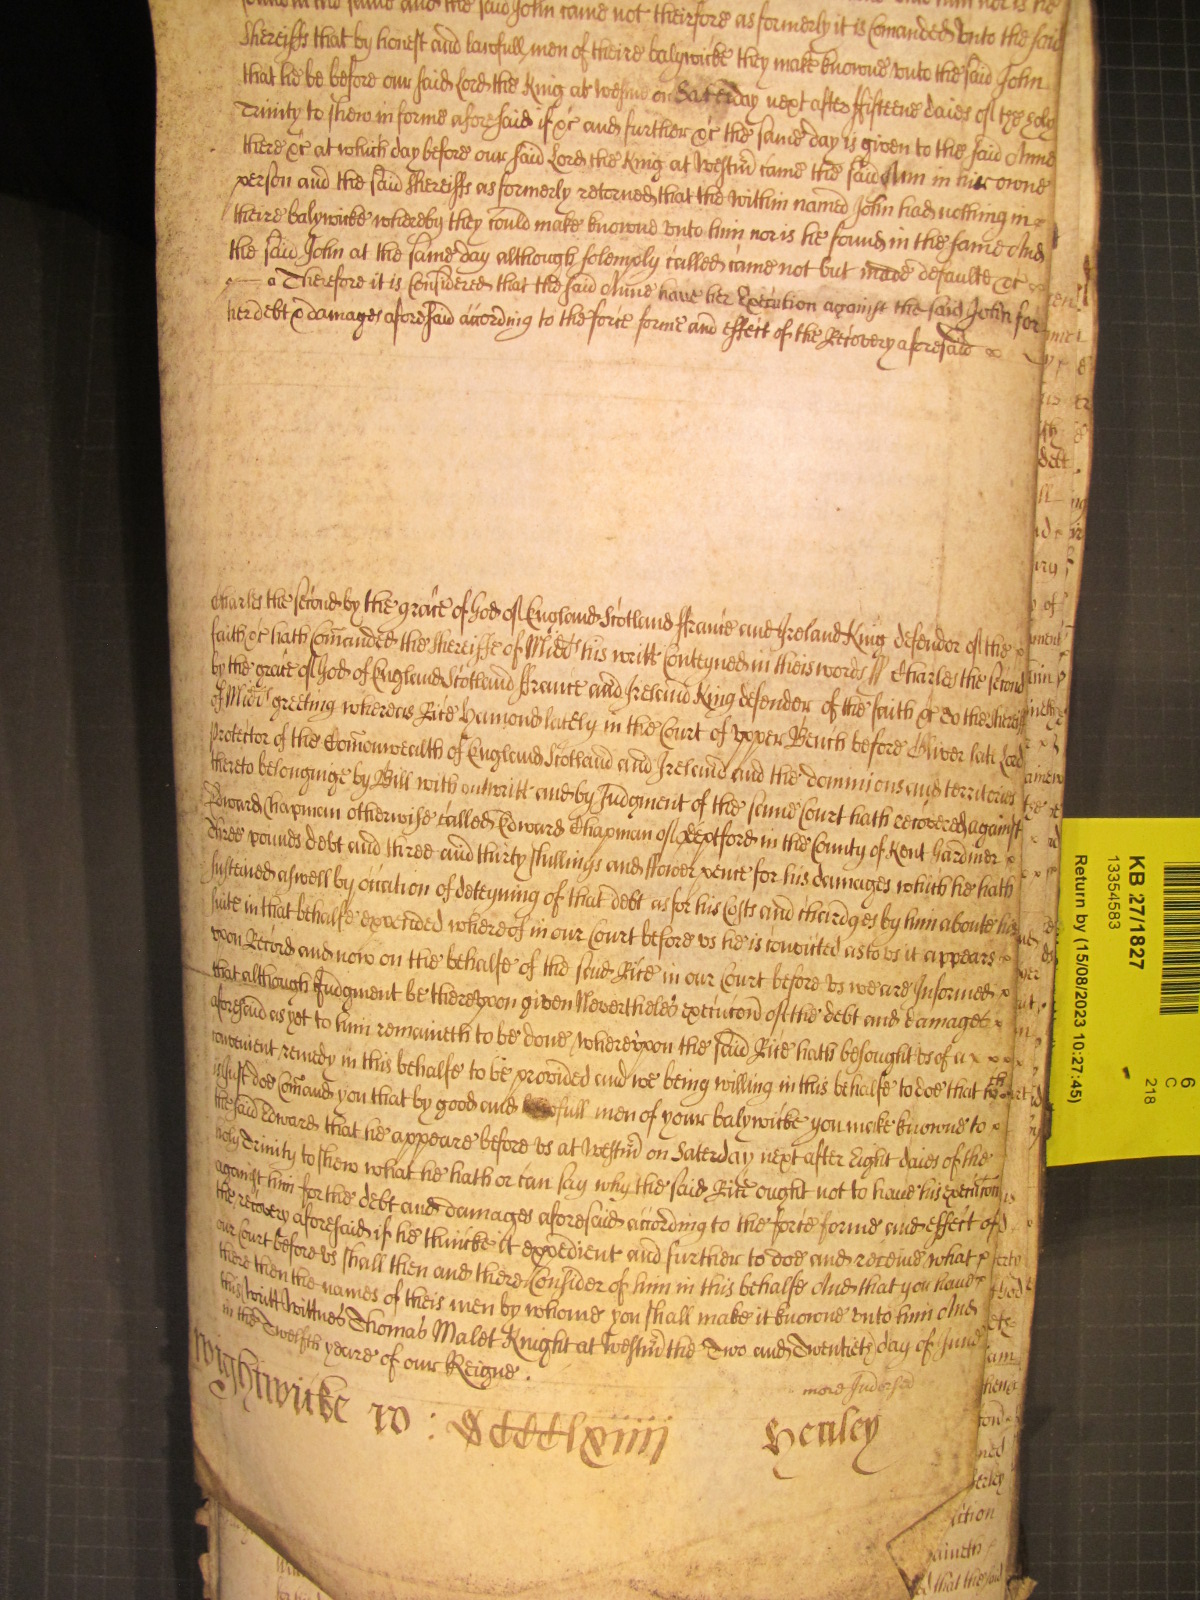 the same and the said John came not theirfore as formerly it is Comanded vnto the said
Shereiffs that by honest and lawfull men of theire balywicke they make knowne vnto the said John
that he be before our said Lord the King at Westm̃ on Saterday next after ffifteene daies of the holy
Trinity to shew in forme aforesaid if &c and further &c the same day is given to the said Anne
there &c at which day before our said Lord the King at Westm̃ came the said Ann in her owne
person and the said Shereiffs as formerly retorned that the within named John had nothing in
theire balywicke whereby they could make knowne vnto him nor is he found in the same And
the said John at the same day although solemply called came not but made defaulte &c
Therefore it is Considered that the said Anne have her Execution against the said John for
her debt & damages aforesaid according to the force forme and effect of the Recovery aforesaid
Charles the second by the grace of God of England Scotland ffrance and Ireland King defendor of the
faith &c hath Comanded the Shereiffe of Midd his writt Conteyned in theis words ss Charles the second
by the grace of God of England Scotland ffrance and Ireland King defender of the faith &c To the Shereiff
of Midd greeting whereas Rice Hamond lately in the Court of vpper Bench before Oliver late Lord
Protector of the Comonwealth of England Scotland and Ireland and the dominions and territories
thereto belonginge by Bill with out writt and by Judgment of the same Court hath recovered against
Edward Chapman otherwise called Edward Chapman of Deptford in the County of Kent Gardiner
Three pounds debt and three and thirty shillings and ffower pence for his damages which he hath
susteined aswell by occation of deteyning of that debt as for his Costs and chardges by him aboute his
suite in that behalfe expended whereof in our Court before vs he is convicted as to vs it appears
vpon Record and now on the behalfe of the said Rice in our Court before vs wee are Informed
that although Judgment be therevpon given Neverthelës execution of the debt and damages
aforesaid as yet to him remaineth to be done wherevpon the said Rice hath besought vs of a
convenient remedy in this behalfe to be provided and we being willing in this behalfe to doe that wch
is Just doe Comand you that by good and lawfull men of your balywicke you make knowne to
the said Edward that he appeare before vs at Westm̃ on Saterday next after Eight daies of the
holy Trinity to shew what he hath or can say why the said Rice ought not to have his execution
against him for the debt and damages aforesaid according to the force forme and effect of
the recovery aforesaid if he thincke it expedient and further to doe and receive what
our Court before vs shall then and there Consider of him in this behalfe And that you have
there then the names of theis men by whome you shall make it knowne vnto him And
this writt Wittnes Thomas Malet Knight at Westm̃ the Two and Twentieth day of June
in the Twelfth yeare of our Reigne.
more Indorsed
Wightwicke ro: Henley
KB 27/1827
13354583
Return by (15/08/2023 10:27:45)
6
C
218